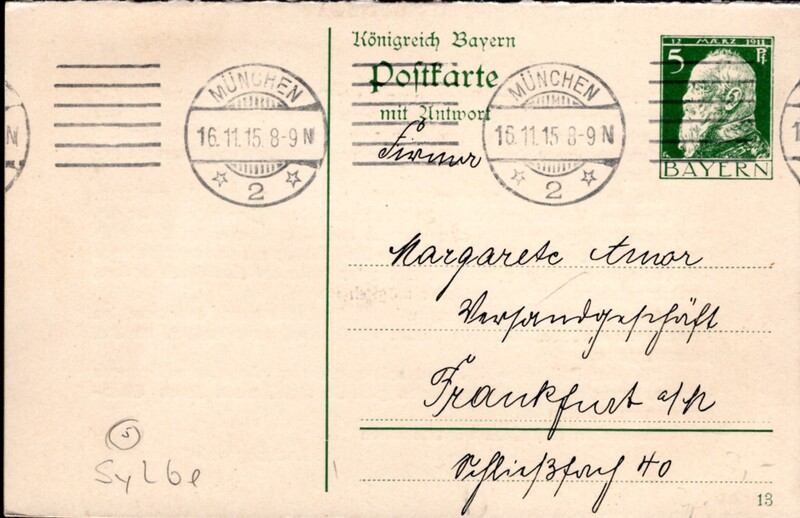 Königreich Bayern
Postkarte
mit Antwort
12 MÆRZ 1911
5 Pf.
BAYERN
MÜNCHEN
16.11.15. 8-9 N
2
MÜNCHEN
16.11.15. 8-9 N
2
N
1
Firma
Margarete Amor
Versandgeschäft
Frankfurt a/M
Schließfach 40
5
Sylbe
13